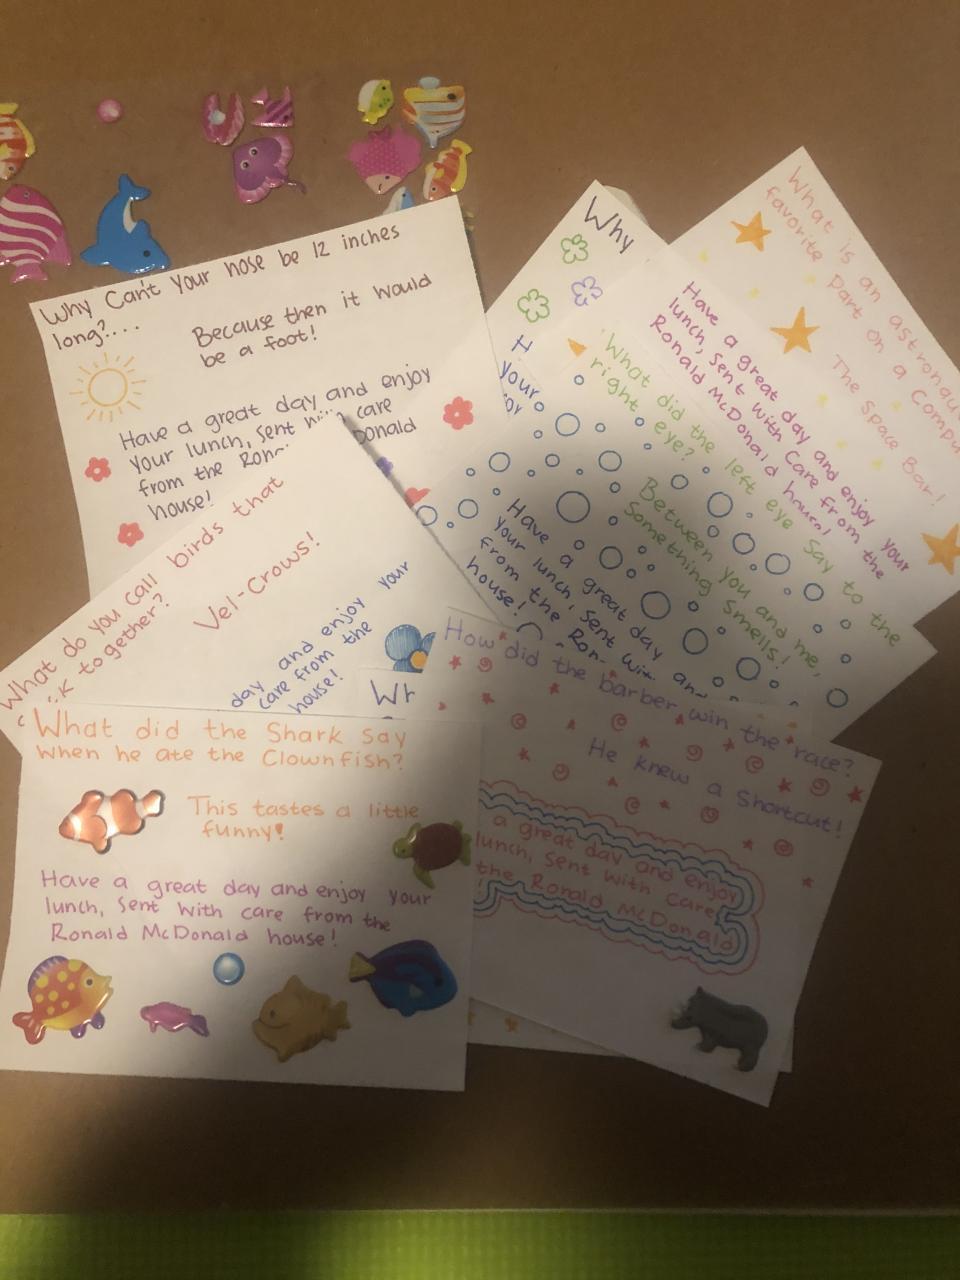 Why Can't your nose be 12 inches
long?....
Because then it would
be a foot!
Have a great day and enjoy
your lunch, sent care
from the
Donald
house!
Why
H
your
What is an
favorite part on a
The Space Bar!
Have a great day and enjoy your
lunch, sent with care from the
Ronald McDonald house!
What did the left eye say to the
right eye?
Between you and me,
Something smells!
Have a great day
your lunch, sent
from the
house!
What do you call birds that
together?
Vel-Crows!
day and enjoy your
care from the
house!
What did the Shark say
when he ate the Clownfish?
This tastes a little
funny!
Have a great day and enjoy your
lunch, sent with care from the
Ronald McDonald house!
How did the barber win the race?
He knew a shortcut!
a great day and enjoy
lunch, sent with care
the Ronald McDonald